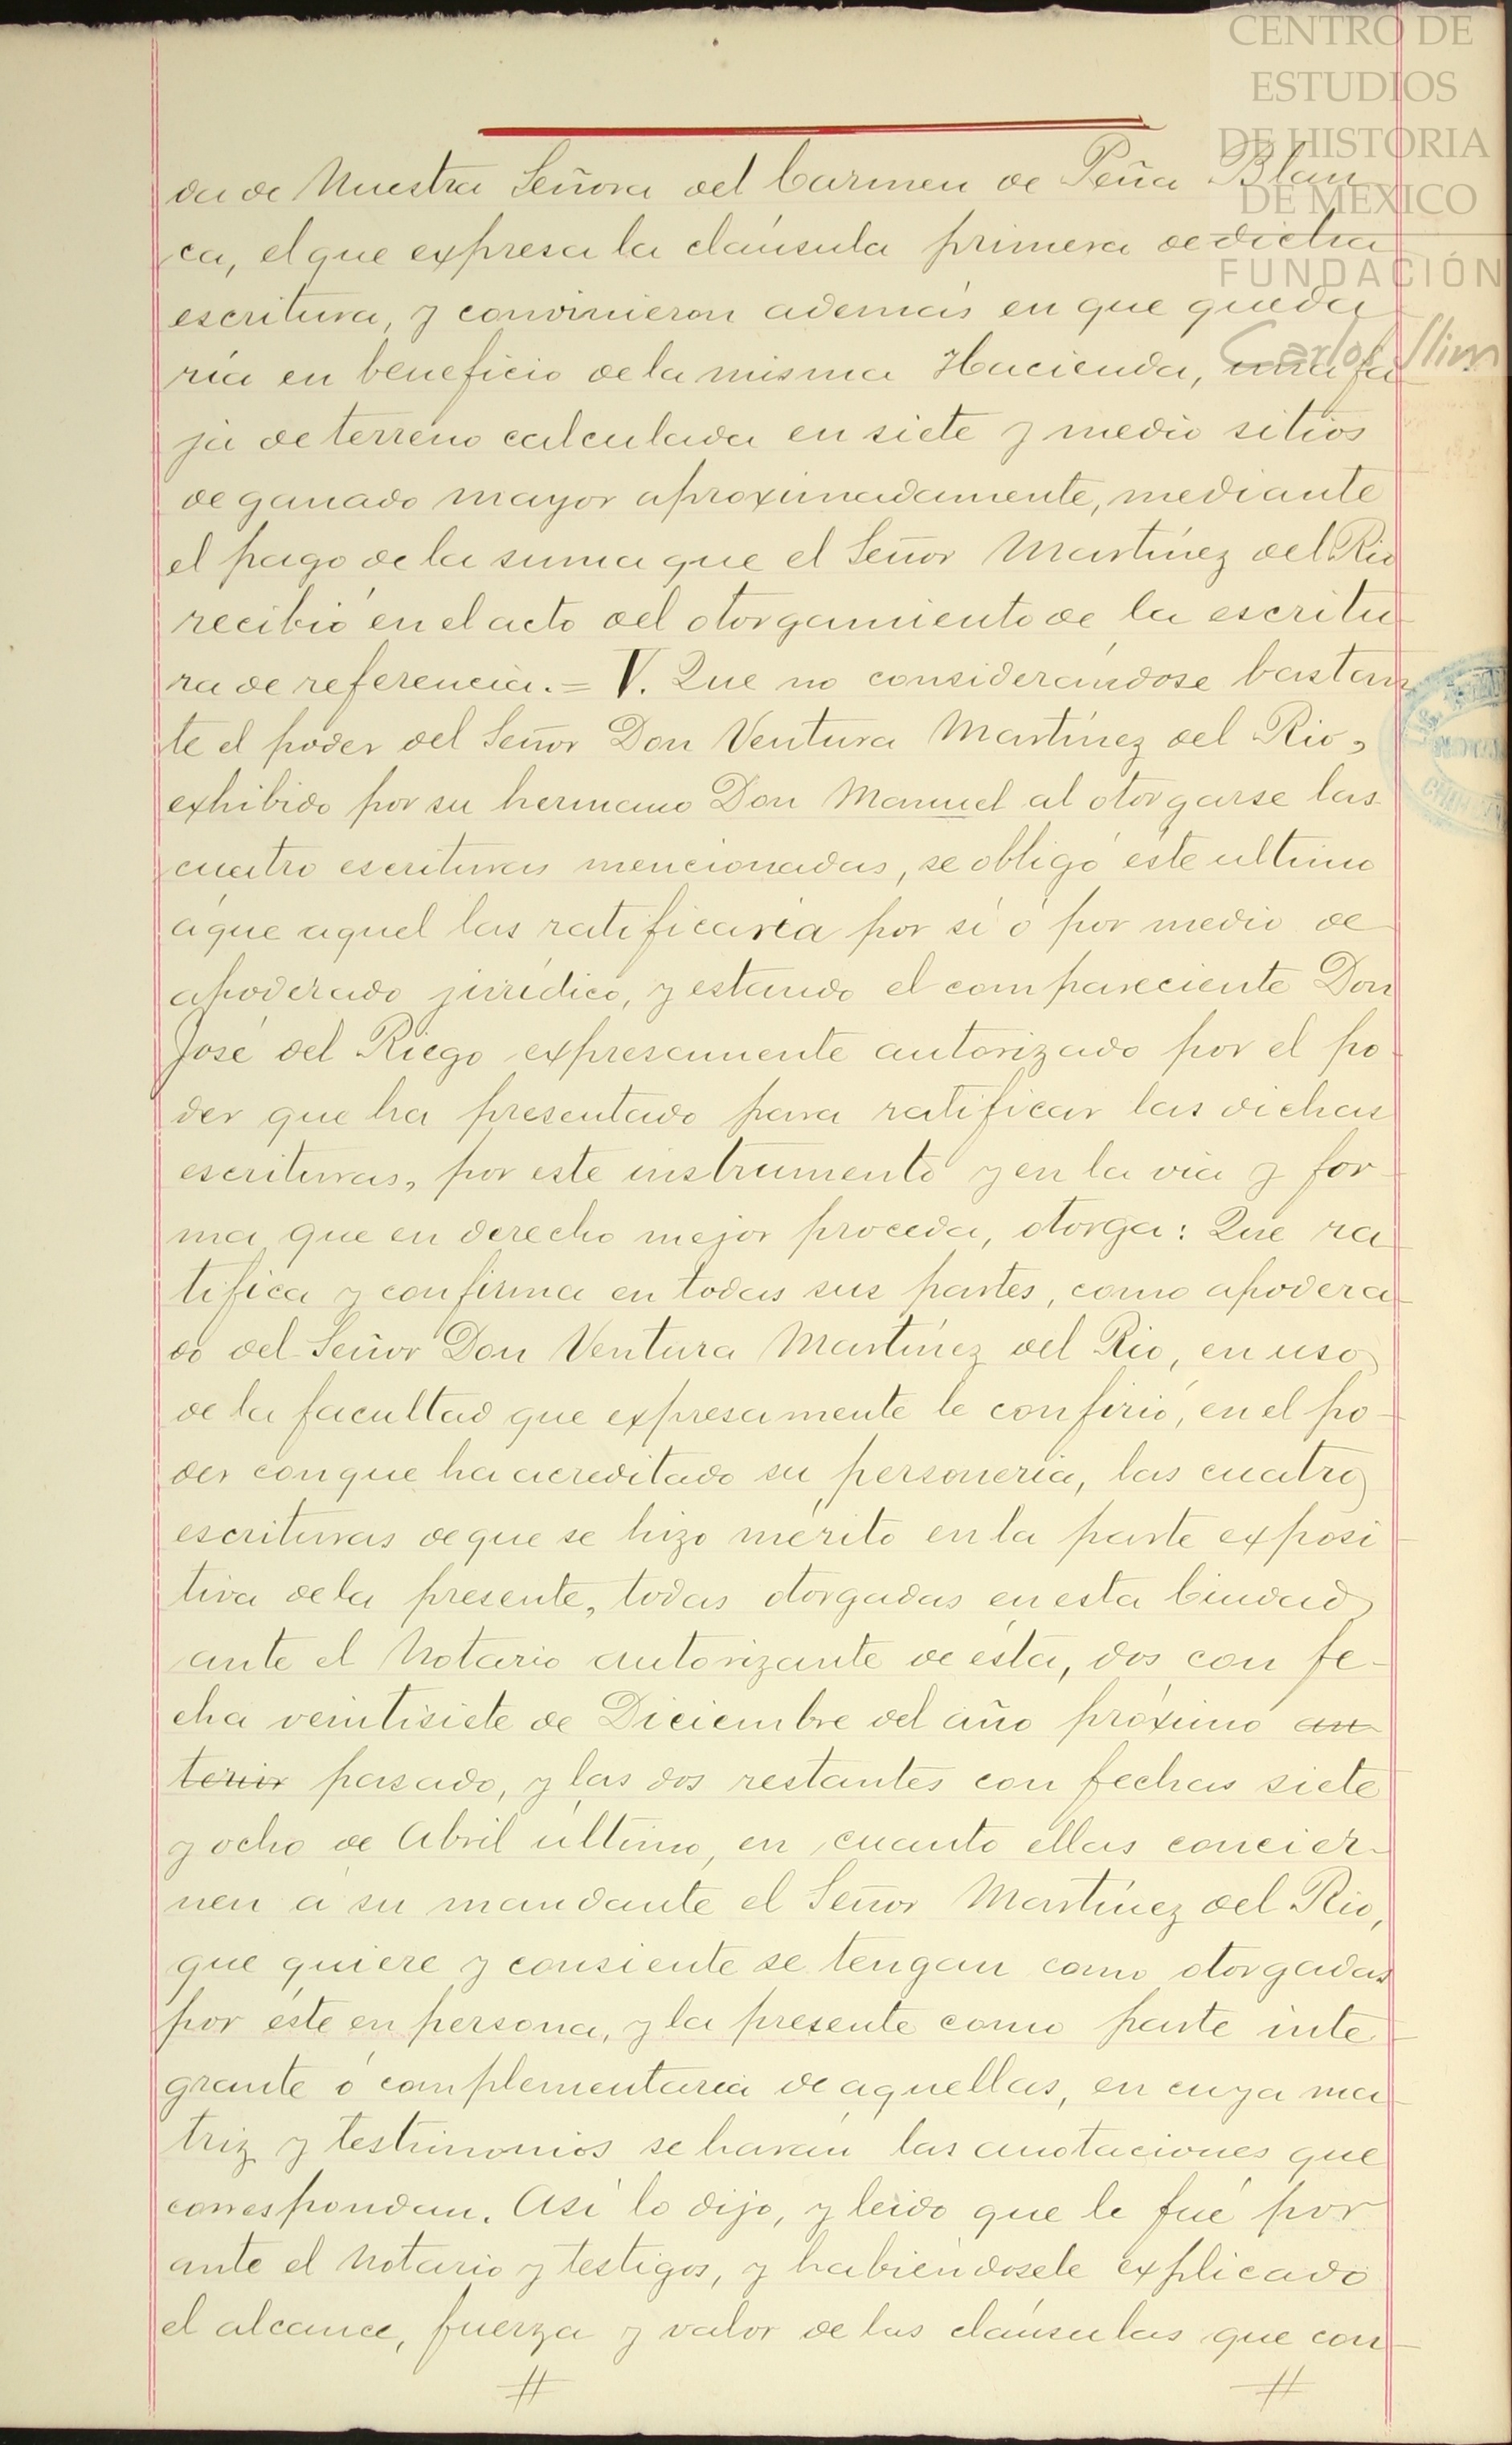 CENTRO DE
ESTUDIOS
DE HISTORIA
DE MEXICO
FUNDACIÓN
Carlos Slim
da de Nuestra Señora del Carmen de Peña Blan
ca, el que expresa la claúsula primera de dicha
escritura, y convinieron además en que queda
ría en beneficio de la misma Hacienda, una fa
ja de terreno calculada en siete y medio sitios
de ganado mayor aproximadamente, mediante
el pago de la suma que el Señor Martínez del Rio
recibió en el acto del otorgamiento de la escritu
ra de referencia.= V. Que no considerándose bastan
te el poder del Señor Don Ventura Martínez del Rio,
exhibido por su hermano Don Manuel al otorgarse las
cuatro escrituras mencionadas, se obligó éste ultimo
á que aquel las ratificaría por sí ó por medio de
apoderado jurídico, y estando el compareciente Don
José del Riego expresamente autorizado por el po
der que ha presentado para ratificar las dichas
escrituras, por este instrumento y en la via y for-
ma que en derecho mejor proceda, otorga: Que ra
tifica y confirma en todas sus partes, como apodera
do del Señor Don Ventura Martínez del Rio, en uso
de la facultad que expresamente le confirió, en el po-
der con que ha acreditado su personería, las cuatro
escrituras de que se hizo mérito en la parte exposi
tiva de la presente, todas otorgadas en esta Ciudad
ante el Notario autorizante de ésta, dos con fe-
cha veintisiete de Diciembre del año próximo an
terior pasado, y las dos restantes con fechas siete
y ocho de Abril último, en cuanto ellas concier-
nen á su mandante el Señor Martínez del Rio,
que quiere y consiente se tengan como otorgadas
por éste en persona, y la presente como parte inte
grante ó complementaria de aquellas, en cuya ma
triz y testimonios se harán las anotaciones que
correspondan. Así lo dijo, y leido que le fué por
ante el Notario y testigos, y habiéndosele explicado
el alcance, fuerza y valor de las claúsulas que con-